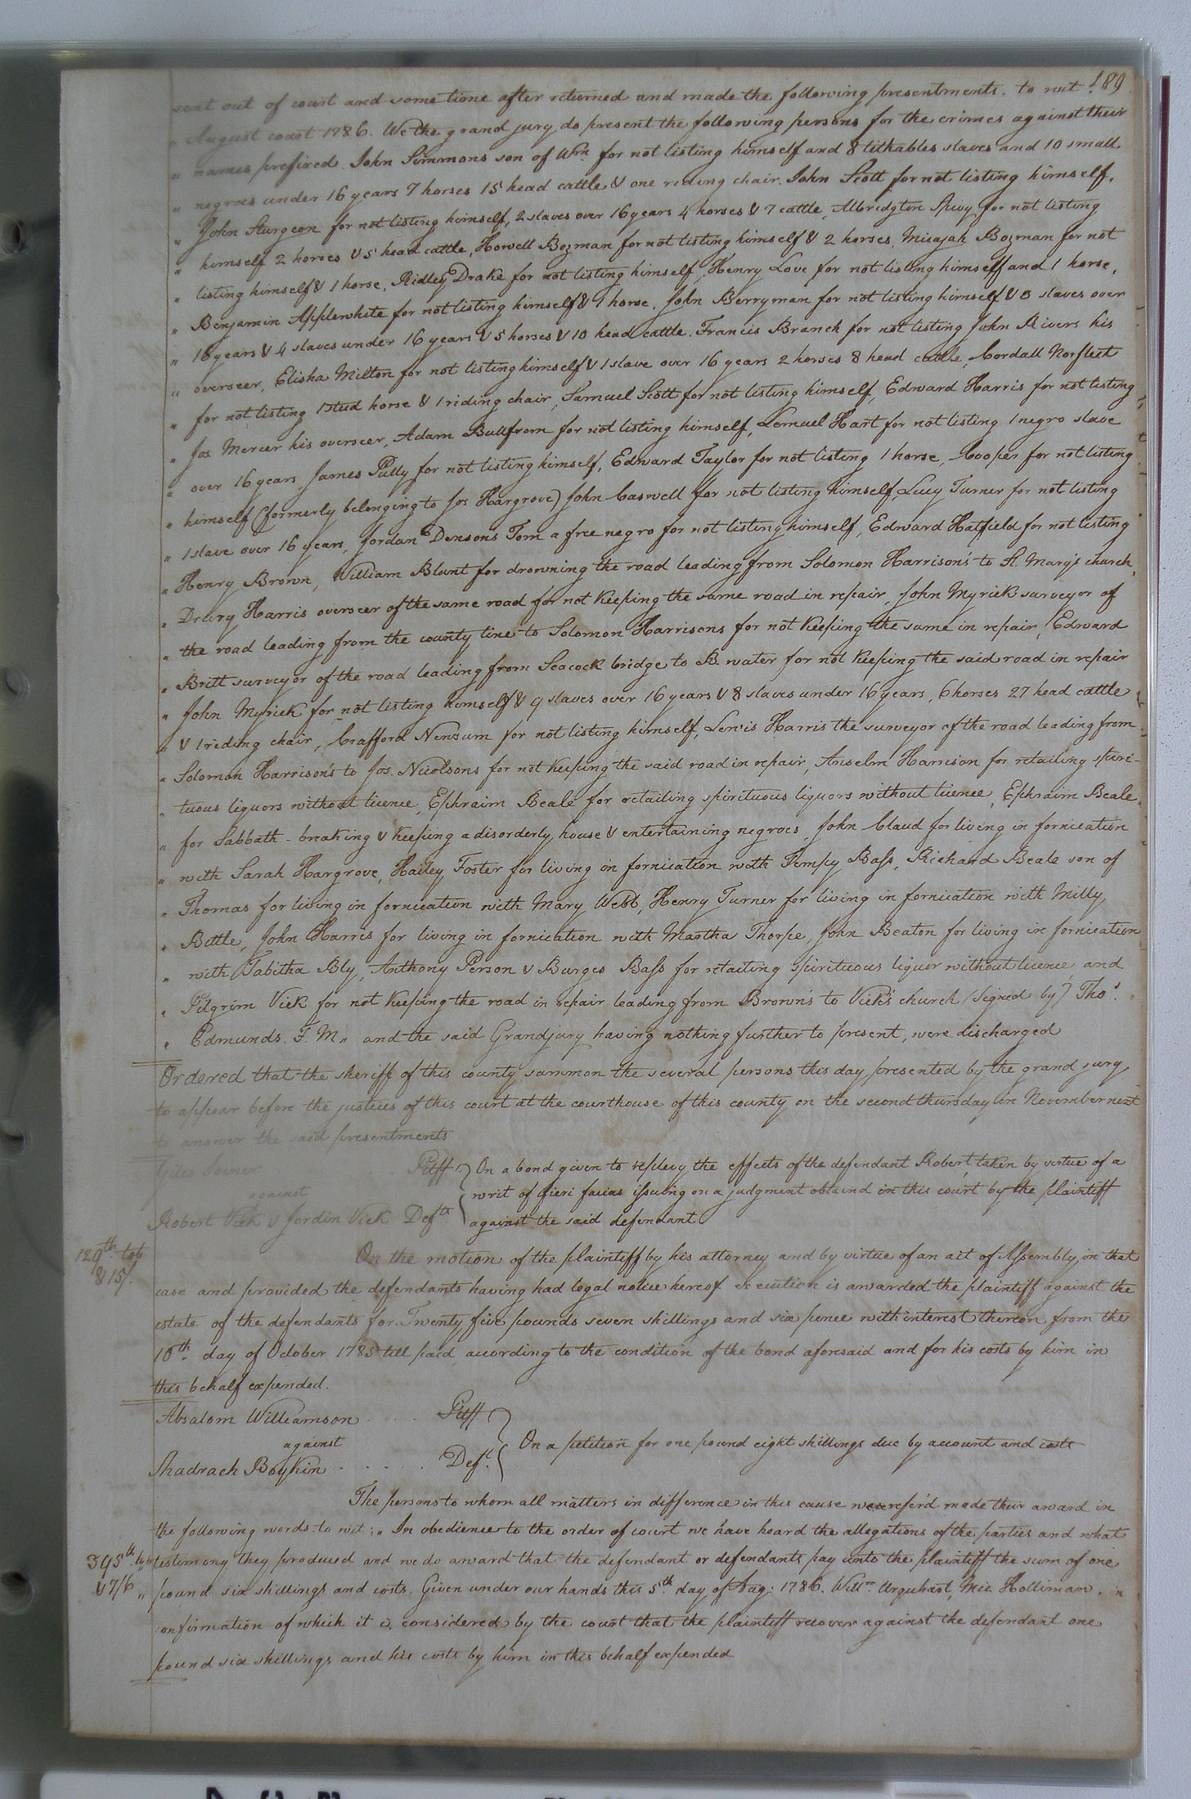 189
sent out of court and some time after returned and made the following presentments. to wit
" August court 1786. We the grand jury do present the following persons for the crimes against their
" names prefixed. John Simmons son of Wm. for not listing himself and 8 tithables slaves and 10 small
" negroes under 16 years 7 horses 15 head cattle & one riding chair. John Scott for not listing himself.
" John Sturgeon for not listing himself, 2 slaves over 16 years 4 horses & 7 cattle, Albridgton Spivy for not listing
" himself 2 horses & 5 head cattle, Howell Bozman for not listing himself & 2 horses, Micajah Bozman for not
" listing himself & 1 horse, Ridley Drake for not listing himself, Henry Love for not listing himself and 1 horse,
" Benjamin Applewhite for not listing himself & 1 horse. John Berryman for not listing himself & 8 slaves over
" 16 years & 4 slaves under 16 years & 5 horses & 10 head cattle. Francis Branch for not listing John Rivers his
" overseer, Elisha Milton for not listing himself & 1 slave over 16 years 2 horses 8 head cattle, Cordall Norfleet
" for not listing 1 stud horse & 1 riding chair, Samuel Scott for not listing himself, Edward Harris for not listing
" Jos Mercer his overseer, Adam Bullfrom for not listing himself, Lemuel Hart for not listing 1 negro slave
" over 16 years, James Pully for not listing himself, Edward Taylor for not listing 1 horse, Cooper for not listing
" himself (formerly belonging to Jos Hargrove) John Caswell for not listing himself, Lucy Turner for not listing
" 1 slave over 16 years, Jordan Denson's Tom a free negro for not listing himself, Edward Hatfield for not listing
" Henry Brown, William Blunt for drowning the road leading from Solomon Harrison's to St. Mary's church,
" Drury Harris overseer of the same road for not keeping the same road in repair, John Myrick surveyor of
" the road leading from the county line to Solomon Harrisons for not keeping the same in repair, Edward
" Britt surveyor of the road leading from Seacock bridge to B. water for not keeping the said road in repair
" John Myrick for not listing himself & 9 slaves over 16 years & 8 slaves under 16 years, 6 horses 27 head cattle
" & 1 riding chair, Crafford Newsum for not listing himself, Lewis Harris the surveyor of the road leading from
" Solomon Harrison's to Jos. Nicolsons for not keeping the said road in repair, Anselm Harrison for retailing spiri-
" tuous liquors without licence, Ephraim Beale for retailing spirituous liquors without licence, Ephraim Beale
" for Sabbath-breaking & keeping a disorderly house & entertaining negroes, John Claud for living in fornication
" with Sarah Hargrove, Hailey Foster for living in fornication with Tempy Bass, Richard Beale son of
" Thomas for living in fornication with Mary Webb, Henry Turner for living in fornication with Milly
" Bittle, John Harris for living in fornication with Martha Thorpe, John Beaton for living in fornication
" with Tabitha Bly, Anthony Person & Burges Bass for retailing spirituous liquor without licence, and
" Pilgrim Vick for not keeping the road in repair leading from Brown's to Vick's church (signed by) Thos.
" Edmunds. F. M. and the said Grandjury having nothing further to present, were discharged
Ordered that the sheriff of this county summon the several persons this day presented by the grand jury
to appear before the justices of this court at the courthouse of this county on the second thursday in November next
to answer the said presentments
Giles Pltff On a bond given to replevy the effects of the defendant Robert, taken by virtue of a
against writ of fieri facias issuing on a judgment obtaind in this court by the plaintiff
Robert Vick & Jordin Vick Defts. against the said defendant
120th tob & 15/. On the motion of the plaintiff by his attorney and by virtue of an act of Assembly in that
case and provided the defendants having had legal notice hereof execution is awarded the plaintiff against the
estate of the defendants for Twenty five pounds seven shillings and six pence with interest thereon from the
10th day of October 1785 till paid according to the condition of the bond aforesaid and for his costs by him in
this behalf expended.
Absalom Williamson Pltff
against On a petition for one pound eight shillings due by account and costs
Shadrach Boykin Deft.
The persons to whom all matters in difference in this cause were refer'd made their award in
the following words to wit: " In obedience to the order of court we have heard the allegations of the parties and what
345th " testimony they produced and we do award that the defendant or defendants pay unto the plaintiff the sum of one
& 7/6 " pound six shillings and costs. Given under our hands this 5th day of Aug: 1786. Willm. Urquhart, Mic Holliman. in
confirmation of which it is considered by the court that the plaintiff recover against the defendant one
pound six shillings and his costs by him in this behalf expended